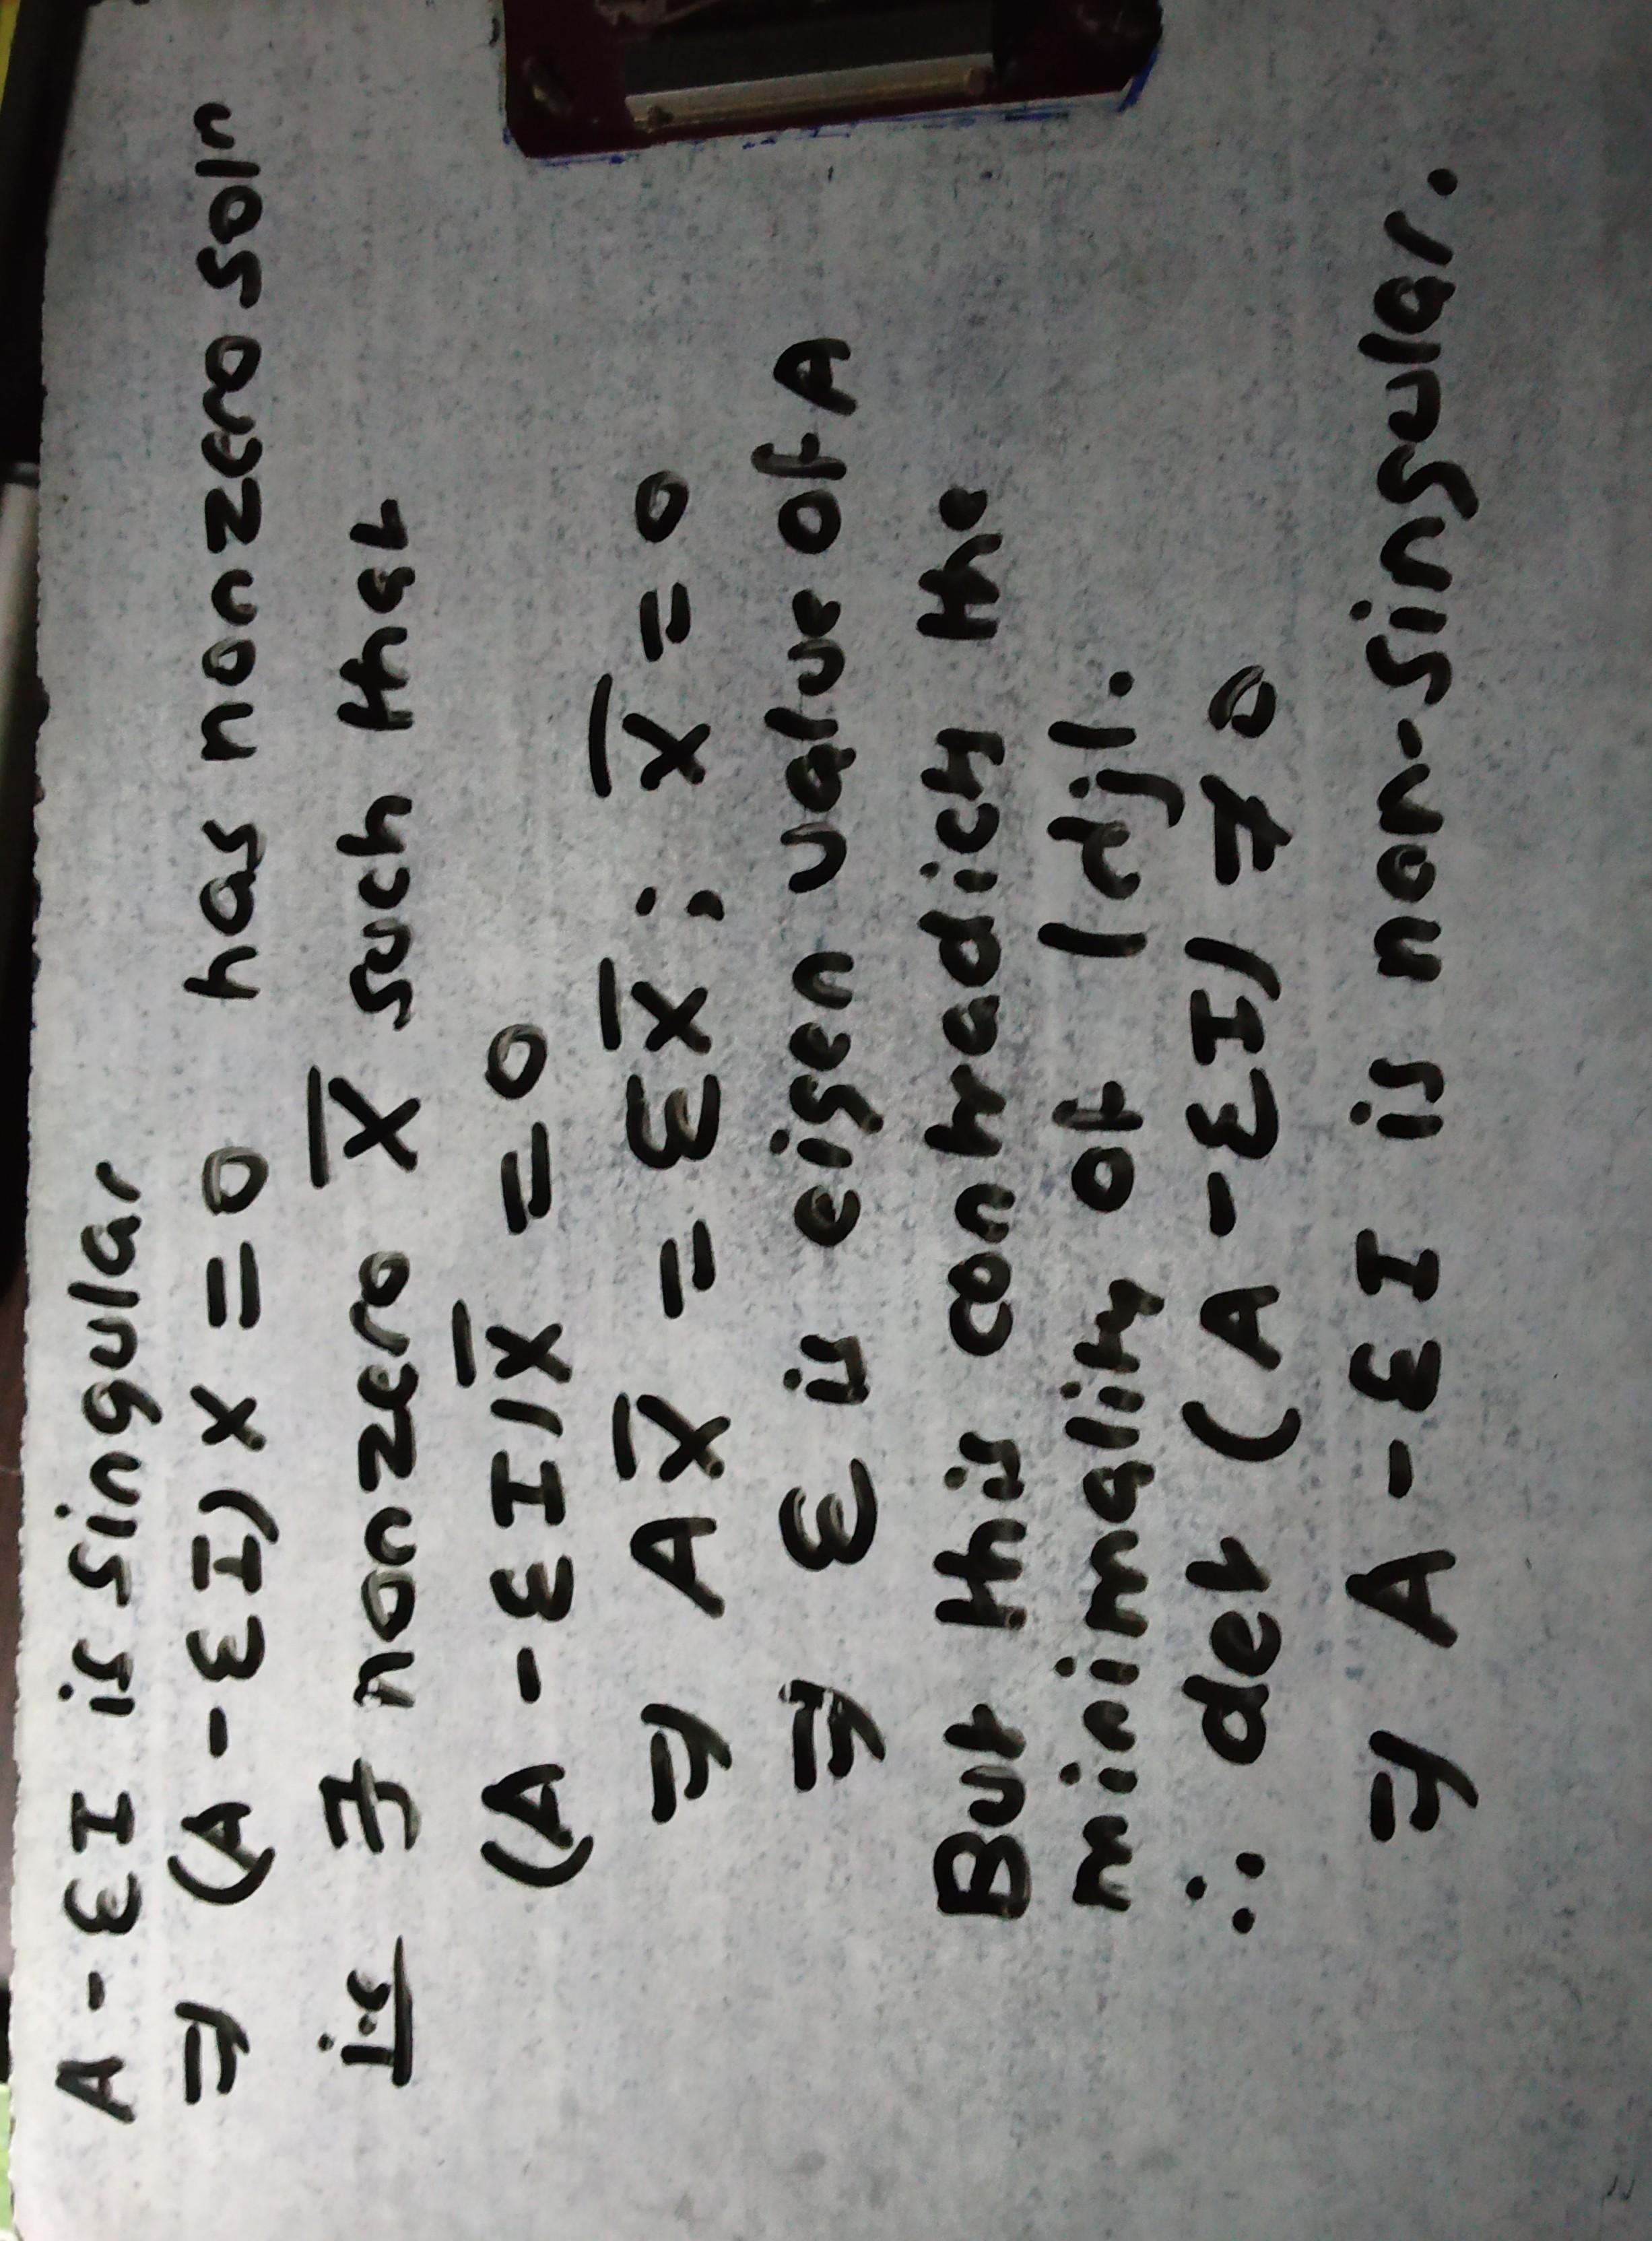 A - ƐI is singular
⇒ (A - ƐI) x = 0 has nonzero soln
i.e ∃ nonzero X̅ such that
(A - ƐI) X̅ = 0
⇒ A X̅ = Ɛ X̅ ; X̅ = 0
⇒ Ɛ is eigen value of A
But this contradicts the
minimality of |dj|.
∴ det (A - ƐI) ≠ 0
⇒ A - ƐI is non-singular.